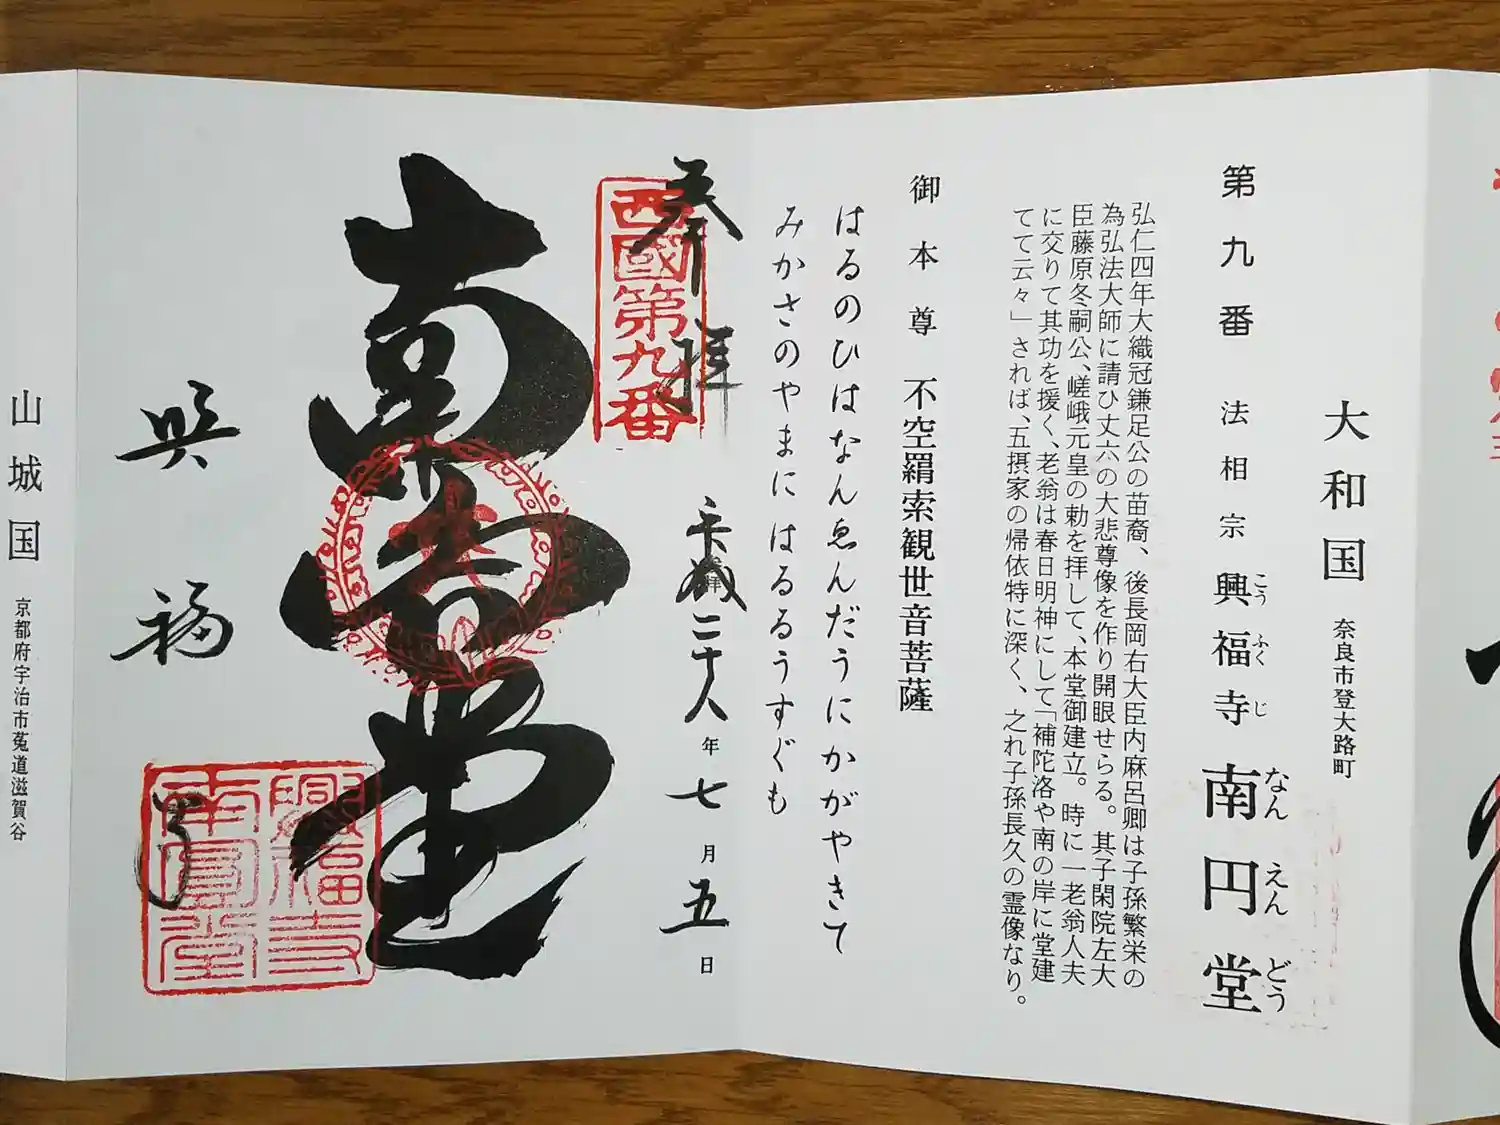 大和国 奈良市登大路町
第九番 法相宗 興福寺 南円堂
こう ふく じ なん えん どう
弘仁四年大織冠鎌足公の苗裔、後長岡右大臣内麻呂卿は子孫繁栄の
為弘法大師に請ひ丈六の大悲尊像を作り開眼せらる。其子閑院左大
臣藤原冬嗣公、嵯峨元皇の勅を拝して、本堂御建立。時に一老翁人夫
に交りて其功を援く、老翁は春日明神にして「補陀洛や南の岸に堂建
てて云々」されば、五摂家の帰依特に深く、之れ子孫長久の霊像なり。
御本尊 不空羂索観世音菩薩
はるのひはなんゑんだうにかがやきて
みかさのやまにはるるうすぐも
奉拝 平成二十八年七月五日
西國第九番
南円堂
興福寺
興福寺
南圓堂
山城国 京都府宇治市菟道滋賀谷